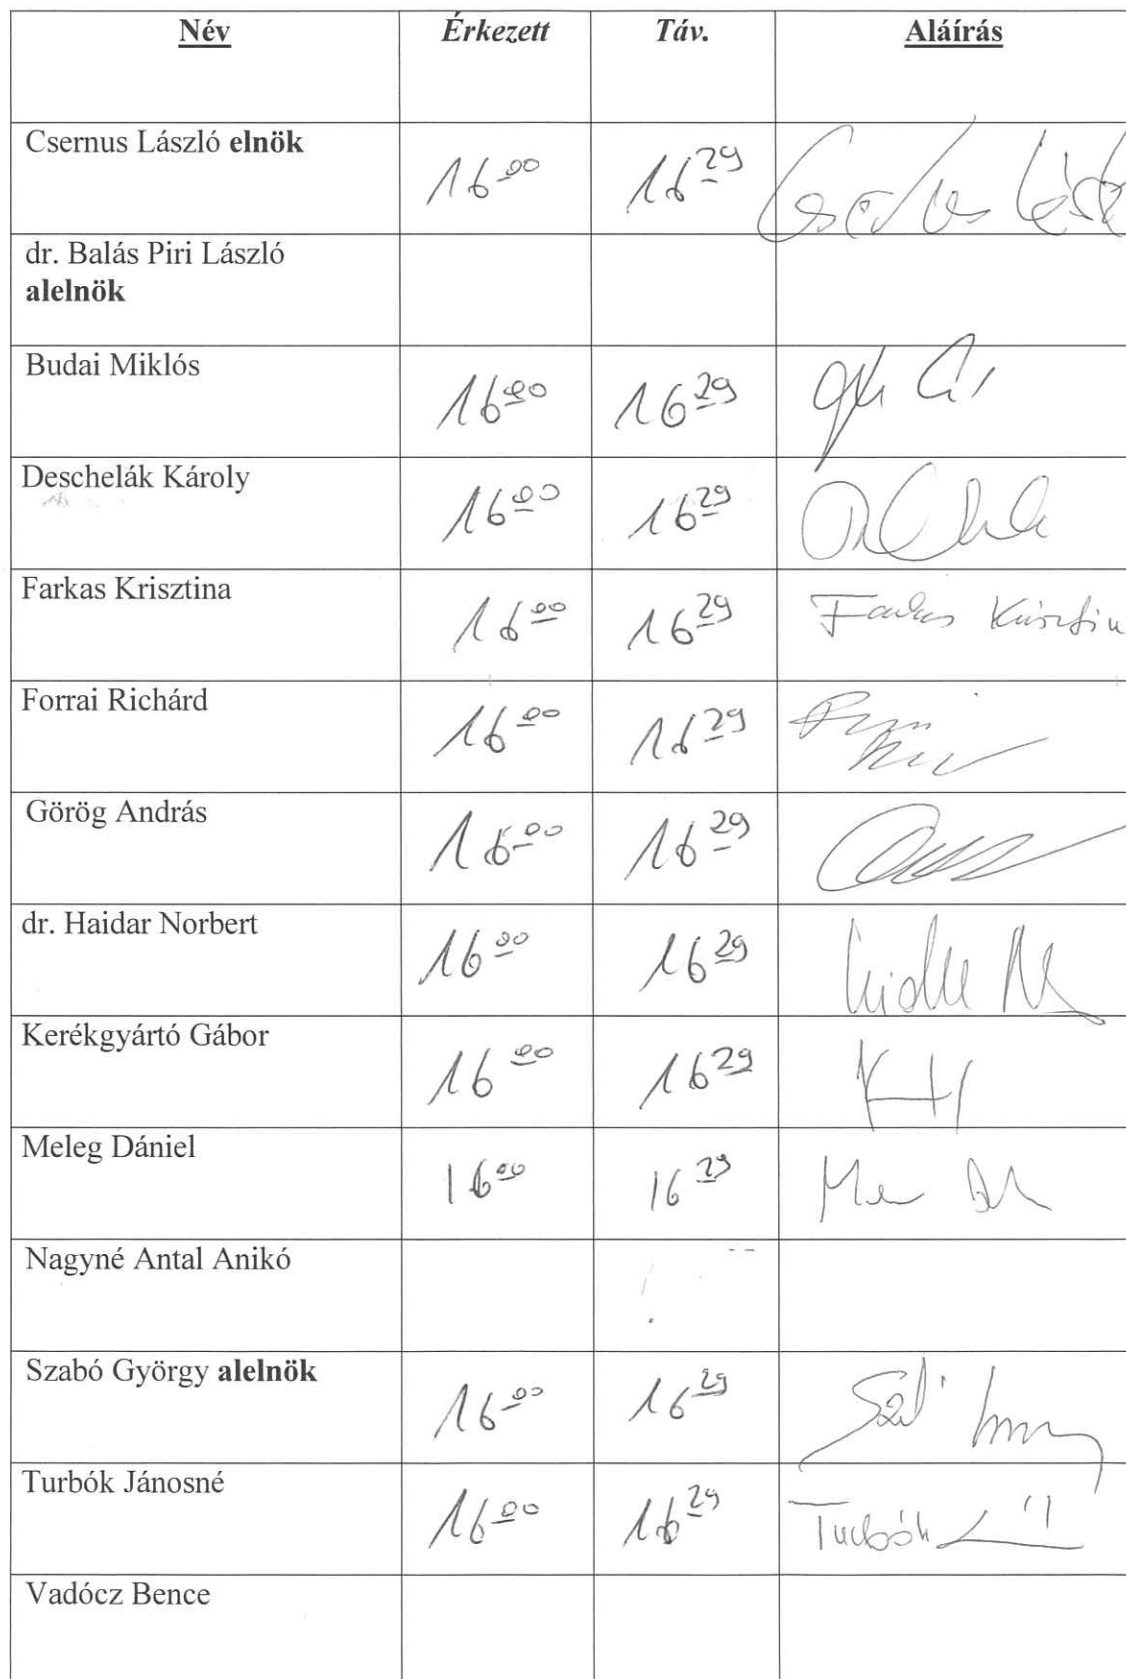 Név Érkezett Táv. Aláírás
Csernus László elnök 16⁰⁰ 16²⁹
dr. Balás Piri László
alelnök
Budai Miklós 16⁰⁰ 16²⁹
Deschelák Károly 16⁰⁰ 16²⁹
Farkas Krisztina 16⁰⁰ 16²⁹ Farkas Krisztin
Forrai Richárd 16⁰⁰ 16²⁹
Görög András 16⁰⁰ 16²⁹
dr. Haidar Norbert 16⁰⁰ 16²⁹
Kerékgyártó Gábor 16⁰⁰ 16²⁹
Meleg Dániel 16⁰⁰ 16²⁹
Nagyné Antal Anikó
Szabó György alelnök 16⁰⁰ 16²⁹
Turbók Jánosné 16⁰⁰ 16²⁹ Turbók
Vadócz Bence